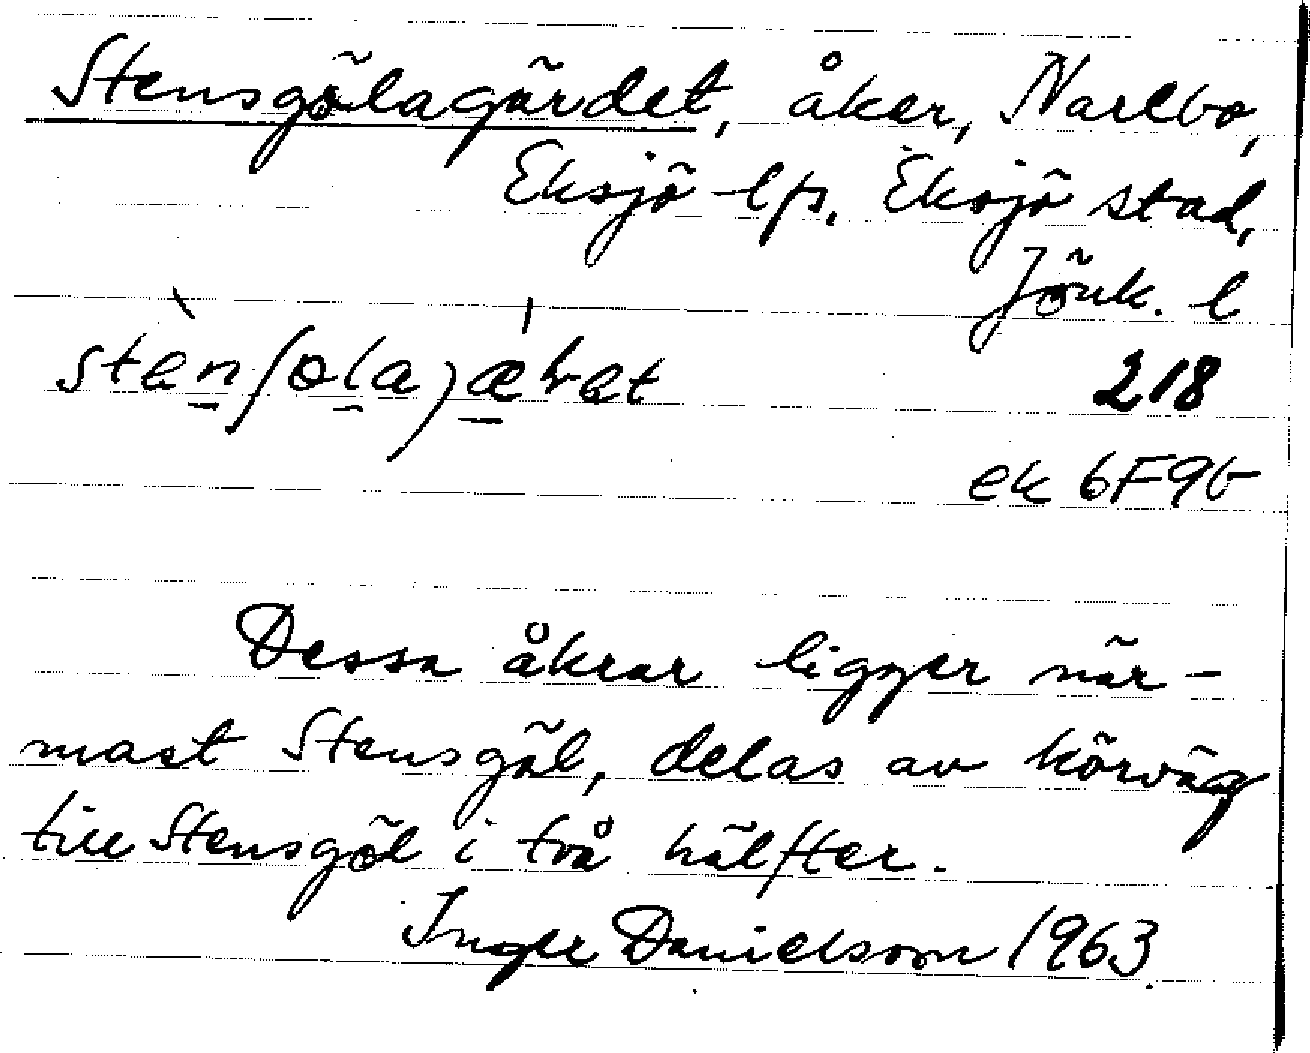 Stensgölagärdet, åker, Narebo,
Eksjö lfs. Eksjö stad,
Jönk. l
218
ek 6F9b
Dessa åkrar ligger när-
mast Stensgöl, delas av körväg
till Stensgöl i två hälfter.
Inger Danielsson 1963